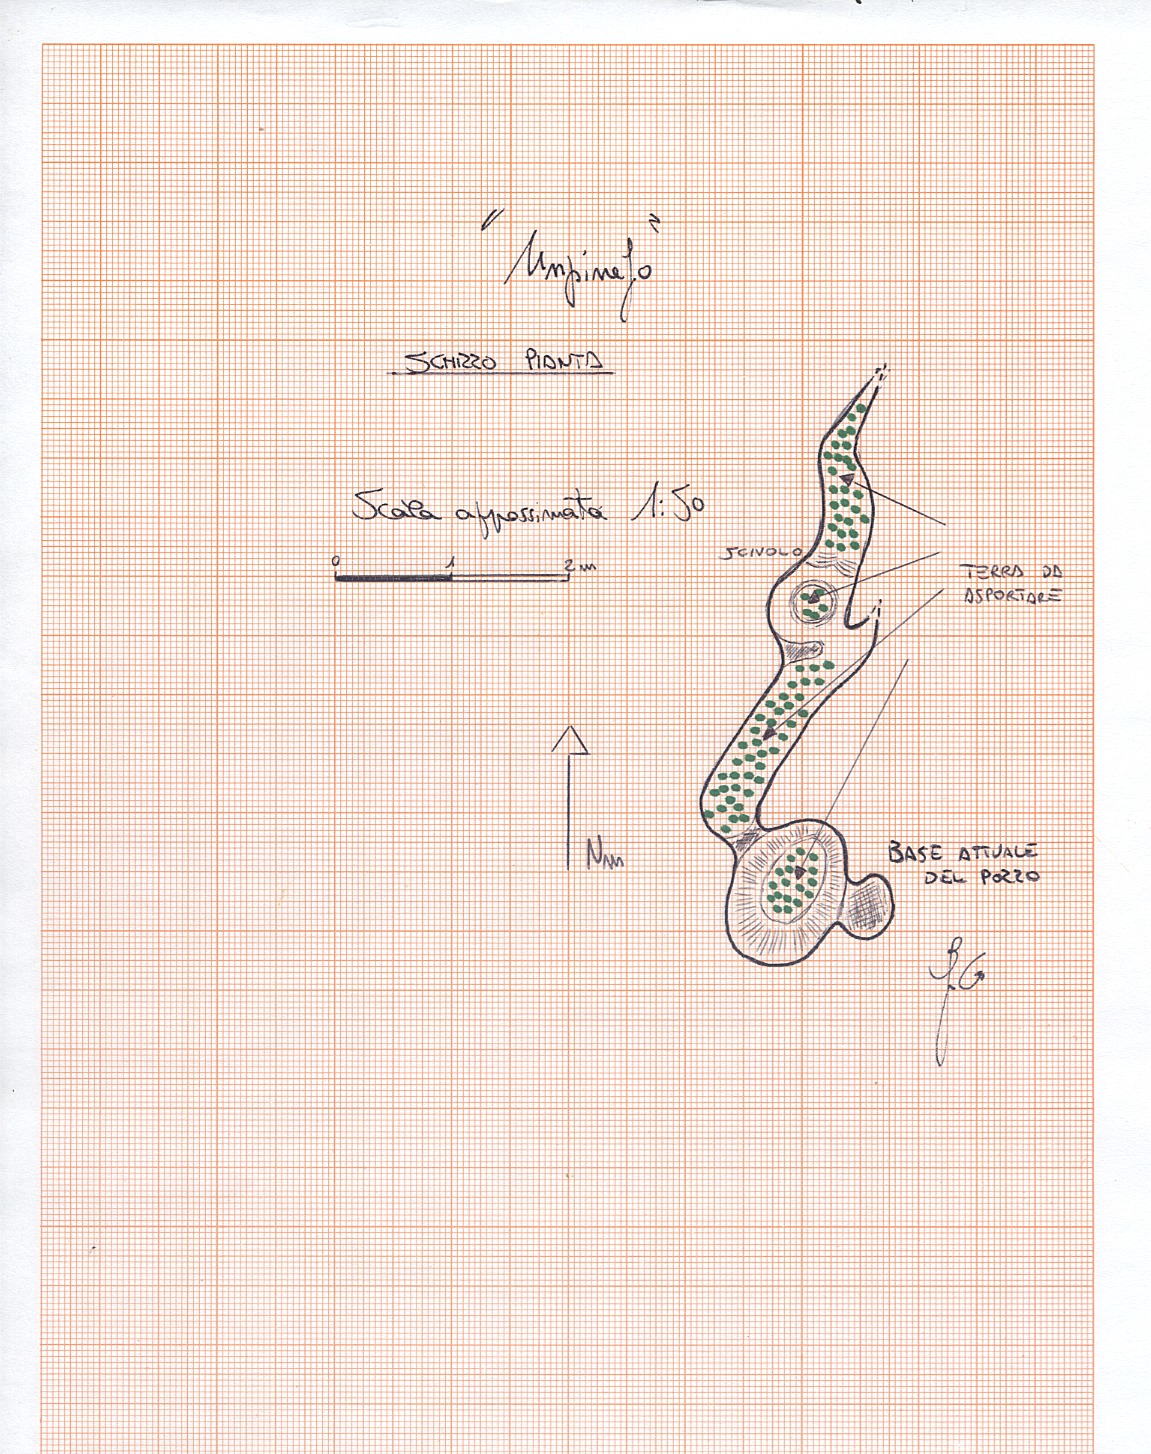 SCHIZZO PIANTA
Scala appossimata 1:50
0 1 2 m
SCIVOLO
TERRA DA
ASPORTARE
Nm
BASE ATTUALE
DEL POZZO